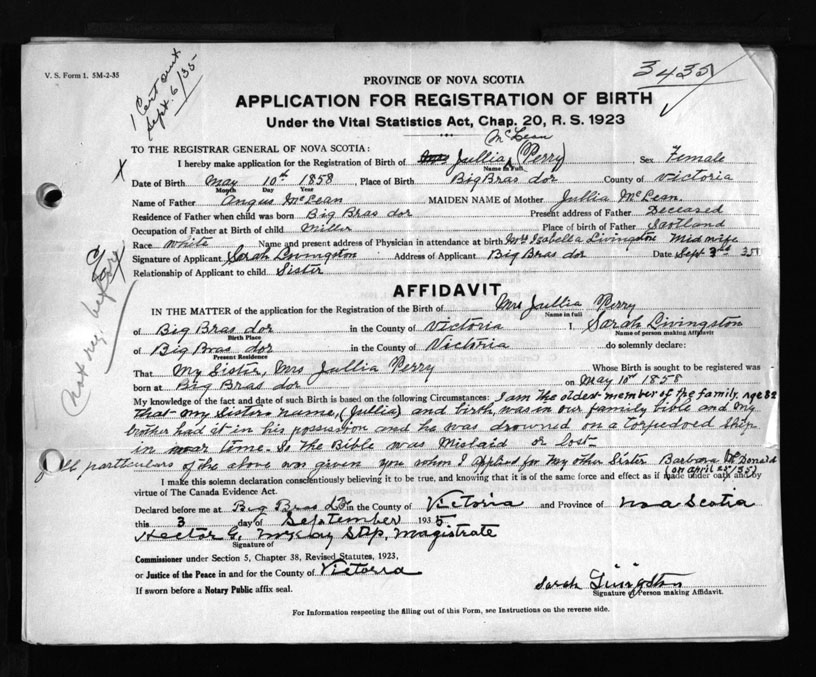 V. S. Form 1. 5M-2-35
1 Cert out
Sept. 6/35
3435
PROVINCE OF NOVA SCOTIA
APPLICATION FOR REGISTRATION OF BIRTH
Under the Vital Statistics Act, Chap. 20, R. S. 1923
TO THE REGISTRAR GENERAL OF NOVA SCOTIA:
McLean
I hereby make application for the Registration of Birth of Jullia (Perry) Sex Female
Name in Full
X
Date of Birth May 10th 1858, Place of Birth Big Bras dor County of Victoria
Month Day Year
Name of Father Angus McLean MAIDEN NAME of Mother Jullia McLean.
Residence of Father when child was born Big Bras dor Present address of Father Deceased
Occupation of Father at Birth of child Miller Place of birth of Father Scotland
Race White Name and present address of Physician in attendance at birth Mrs Isabella Livingston Mid wife
Signature of Applicant Sarah Livingston Address of Applicant Big Bras dor Date Sept 3rd 35
Relationship of Applicant to child Sister
Not reg. before
AFFIDAVIT
IN THE MATTER of the application for the Registration of the Birth of Mrs Jullia Perry
Name in full
of Big Bras dor in the County of Victoria I, Sarah Livingston
Birth Place Name of person making Affidavit
of Big Bras dor in the County of Victoria do solemnly declare:
Present Residence
That My Sister, Mrs Jullia Perry Whose Birth is sought to be registered was
born at Big Bras dor on May 10th 1858
My knowledge of the fact and date of such Birth is based on the following Circumstances: I am the oldest member of the family. age 82
that my Sisters name, (Jullia) and birth was in our family bible and my
brother had it in his possession and he was drowned on a torpedoed ship
in war time. So the Bible was Mislaid or lost
full particulars of the above was given you when I applied for my other Sister Barbara McDonald
(on April 25/35)
I make this solemn declaration conscientiously believing it to be true, and knowing that it is of the same force and effect as if made under oath and by
virtue of The Canada Evidence Act.
Declared before me at Big Bras D'Or in the County of Victoria and Province of Nova Scotia
this 3 day of September 1935
Hector G. McKay Stip, Magistrate
Signature of
Commissioner under Section 5, Chapter 38, Revised Statutes, 1923,
or Justice of the Peace in and for the County of Victoria
If sworn before a Notary Public affix seal.
Sarah Livingston
Signature of Person making Affidavit.
For Information respecting the filling out of this Form, see Instructions on the reverse side.